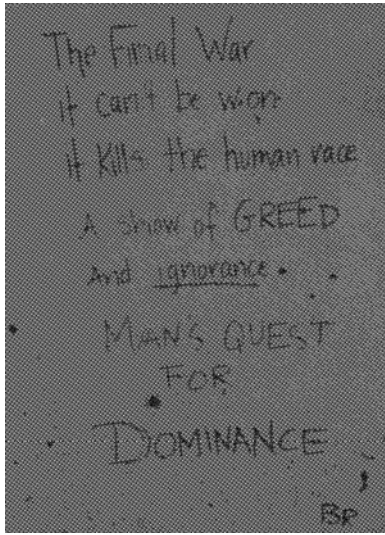 The Final War
it can't be won
it kills the human race
A show of GREED
And ignorance.
MAN'S QUEST
FOR
DOMINANCE
BP